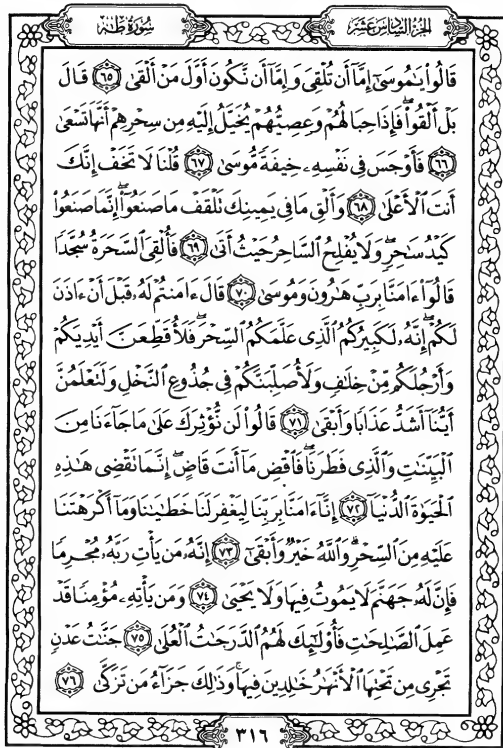 الجزء السادس عشر
سورة طه
قَالُوا۟ يَٰمُوسَىٰٓ إِمَّآ أَن تُلْقِىَ وَإِمَّآ أَن نَّكُونَ أَوَّلَ مَنْ أَلْقَىٰ ﴿٦٥﴾ قَالَ
بَلْ أَلْقُوا۟ ۖ فَإِذَا حِبَالُهُمْ وَعِصِيُّهُمْ يُخَيَّلُ إِلَيْهِ مِن سِحْرِهِمْ أَنَّهَا تَسْعَىٰ
﴿٦٦﴾ فَأَوْجَسَ فِى نَفْسِهِۦ خِيفَةً مُّوسَىٰ ﴿٦٧﴾ قُلْنَا لَا تَخَفْ إِنَّكَ
أَنتَ ٱلْأَعْلَىٰ ﴿٦٨﴾ وَأَلْقِ مَا فِى يَمِينِكَ تَلْقَفْ مَا صَنَعُوٓا۟ ۖ إِنَّمَا صَنَعُوا۟
كَيْدُ سَٰحِرٍ ۖ وَلَا يُفْلِحُ ٱلسَّاحِرُ حَيْثُ أَتَىٰ ﴿٦٩﴾ فَأُلْقِىَ ٱلسَّحَرَةُ سُجَّدًا
قَالُوٓا۟ ءَامَنَّا بِرَبِّ هَٰرُونَ وَمُوسَىٰ ﴿٧٠﴾ قَالَ ءَامَنتُمْ لَهُۥ قَبْلَ أَنْ ءَاذَنَ
لَكُمْ ۖ إِنَّهُۥ لَكَبِيرُكُمُ ٱلَّذِى عَلَّمَكُمُ ٱلسِّحْرَ ۖ فَلَأُقَطِّعَنَّ أَيْدِيَكُمْ
وَأَرْجُلَكُم مِّنْ خِلَٰفٍ وَلَأُصَلِّبَنَّكُمْ فِى جُذُوعِ ٱلنَّخْلِ وَلَتَعْلَمُنَّ
أَيُّنَآ أَشَدُّ عَذَابًا وَأَبْقَىٰ ﴿٧١﴾ قَالُوا۟ لَن نُّؤْثِرَكَ عَلَىٰ مَا جَآءَنَا مِنَ
ٱلْبَيِّنَٰتِ وَٱلَّذِى فَطَرَنَا ۖ فَٱقْضِ مَآ أَنتَ قَاضٍ ۖ إِنَّمَا تَقْضِى هَٰذِهِ
ٱلْحَيَوٰةَ ٱلدُّنْيَآ ﴿٧٢﴾ إِنَّآ ءَامَنَّا بِرَبِّنَا لِيَغْفِرَ لَنَا خَطَٰيَٰنَا وَمَآ أَكْرَهْتَنَا
عَلَيْهِ مِنَ ٱلسِّحْرِ ۗ وَٱللَّهُ خَيْرٌ وَأَبْقَىٰٓ ﴿٧٣﴾ إِنَّهُۥ مَن يَأْتِ رَبَّهُۥ مُجْرِمًا
فَإِنَّ لَهُۥ جَهَنَّمَ لَا يَمُوتُ فِيهَا وَلَا يَحْيَىٰ ﴿٧٤﴾ وَمَن يَأْتِهِۦ مُؤْمِنًا قَدْ
عَمِلَ ٱلصَّٰلِحَٰتِ فَأُو۟لَٰٓئِكَ لَهُمُ ٱلدَّرَجَٰتُ ٱلْعُلَىٰ ﴿٧٥﴾ جَنَّٰتُ عَدْنٍ
تَجْرِى مِن تَحْتِهَا ٱلْأَنْهَٰرُ خَٰلِدِينَ فِيهَا ۚ وَذَٰلِكَ جَزَآءُ مَن تَزَكَّىٰ ﴿٧٦﴾
٣١٦